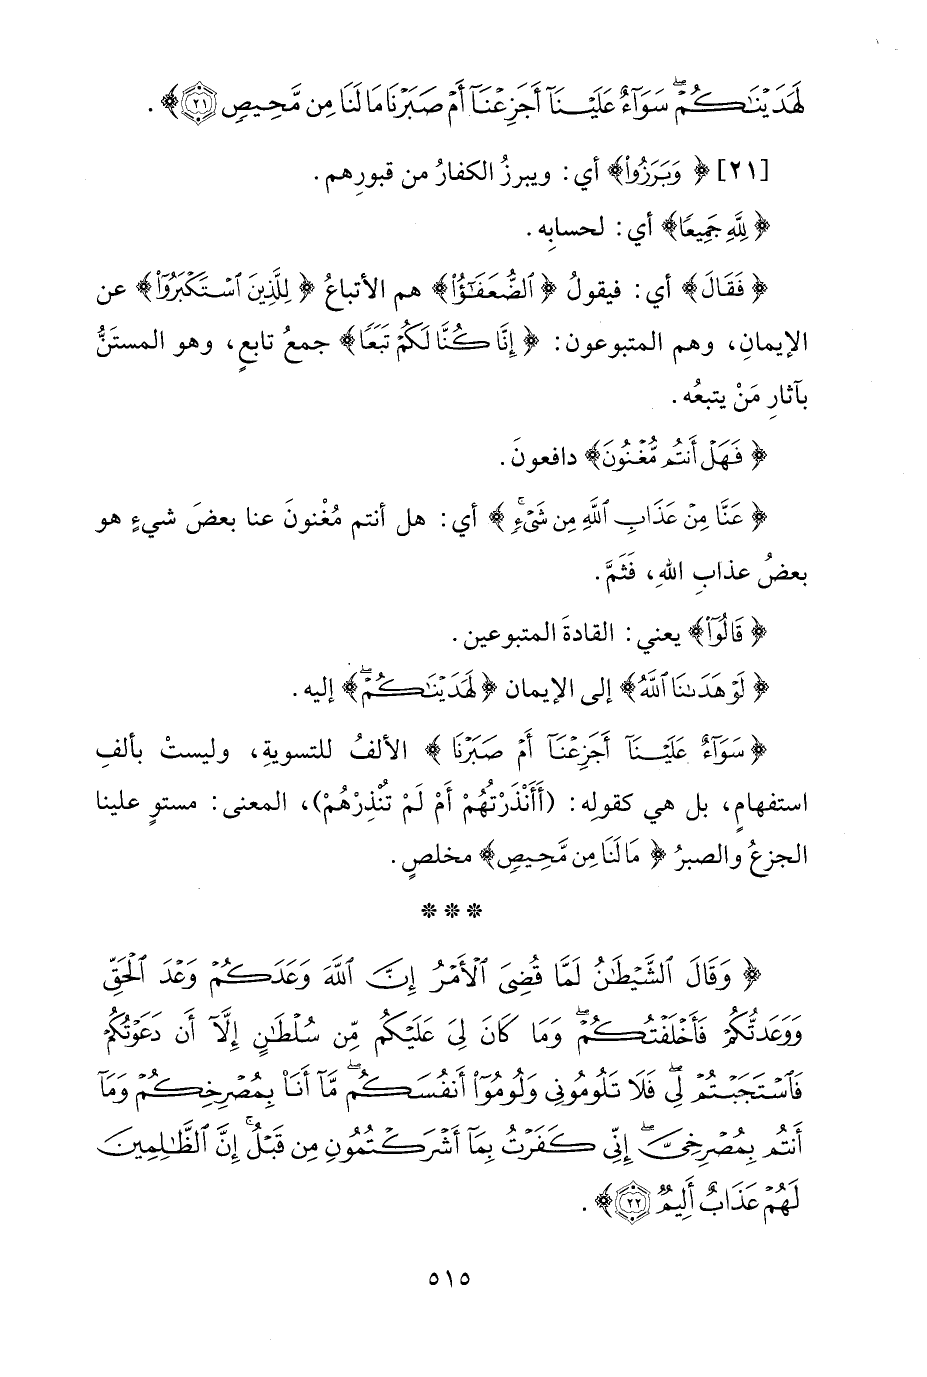 لَهَدَيْنَٰكُمْ ۖ سَوَآءٌ عَلَيْنَآ أَجَزِعْنَآ أَمْ صَبَرْنَا مَا لَنَا مِن مَّحِيصٍ ﴿٢١﴾ ﴾ .
[٢١] ﴿ وَبَرَزُواْ﴾ أي: ويبرزُ الكفارُ من قبورِهم.
﴿ لِلَّهِ جَمِيعًا﴾ أي: لحسابِه.
﴿ فَقَالَ﴾ أي: فيقولُ ﴿ ٱلضُّعَفَٰٓؤُاْ﴾ هم الأتباعُ ﴿ لِلَّذِينَ ٱسْتَكْبَرُوٓاْ﴾ عن
الإيمانِ، وهم المتبوعون: ﴿ إِنَّا كُنَّا لَكُمْ تَبَعًا﴾ جمعُ تابعٍ، وهو المستَنُّ
بآثارِ مَنْ يتبعُه.
﴿ فَهَلْ أَنتُم مُّغْنُونَ﴾ دافعونَ.
﴿ عَنَّا مِنْ عَذَابِ ٱللَّهِ مِن شَىْءٍ ۚ ﴾ أي: هل أنتم مُغْنونَ عنا بعضَ شيءٍ هو
بعضُ عذابِ اللهِ، فَثَمَّ.
﴿ قَالُوٓاْ﴾ يعني: القادةَ المتبوعين.
﴿ لَوْ هَدَىٰنَا ٱللَّهُ﴾ إلى الإيمان ﴿لَهَدَيْنَٰكُمْ ۖ﴾ إليه.
﴿سَوَآءٌ عَلَيْنَآ أَجَزِعْنَآ أَمْ صَبَرْنَا ﴾ الألفُ للتسويةِ، وليستْ بألفِ
استفهامٍ، بل هي كقولِه: (أَأَنْذَرْتَهُمْ أَمْ لَمْ تُنْذِرْهُمْ)، المعنى: مستوٍ علينا
الجزعُ والصبرُ ﴿ مَا لَنَا مِن مَّحِيصٍ﴾ مخلصٍ.
* * *
﴿ وَقَالَ ٱلشَّيْطَٰنُ لَمَّا قُضِىَ ٱلْأَمْرُ إِنَّ ٱللَّهَ وَعَدَكُمْ وَعْدَ ٱلْحَقِّ
وَوَعَدتُّكُمْ فَأَخْلَفْتُكُمْ ۖ وَمَا كَانَ لِىَ عَلَيْكُم مِّن سُلْطَٰنٍ إِلَّآ أَن دَعَوْتُكُمْ
فَٱسْتَجَبْتُمْ لِى ۖ فَلَا تَلُومُونِى وَلُومُوٓاْ أَنفُسَكُم ۖ مَّآ أَنَا۠ بِمُصْرِخِكُمْ وَمَآ
أَنتُم بِمُصْرِخِىَّ ۖ إِنِّى كَفَرْتُ بِمَآ أَشْرَكْتُمُونِ مِن قَبْلُ ۗ إِنَّ ٱلظَّٰلِمِينَ
لَهُمْ عَذَابٌ أَلِيمٌ ﴿٢٢﴾ ﴾ .
٥١٥